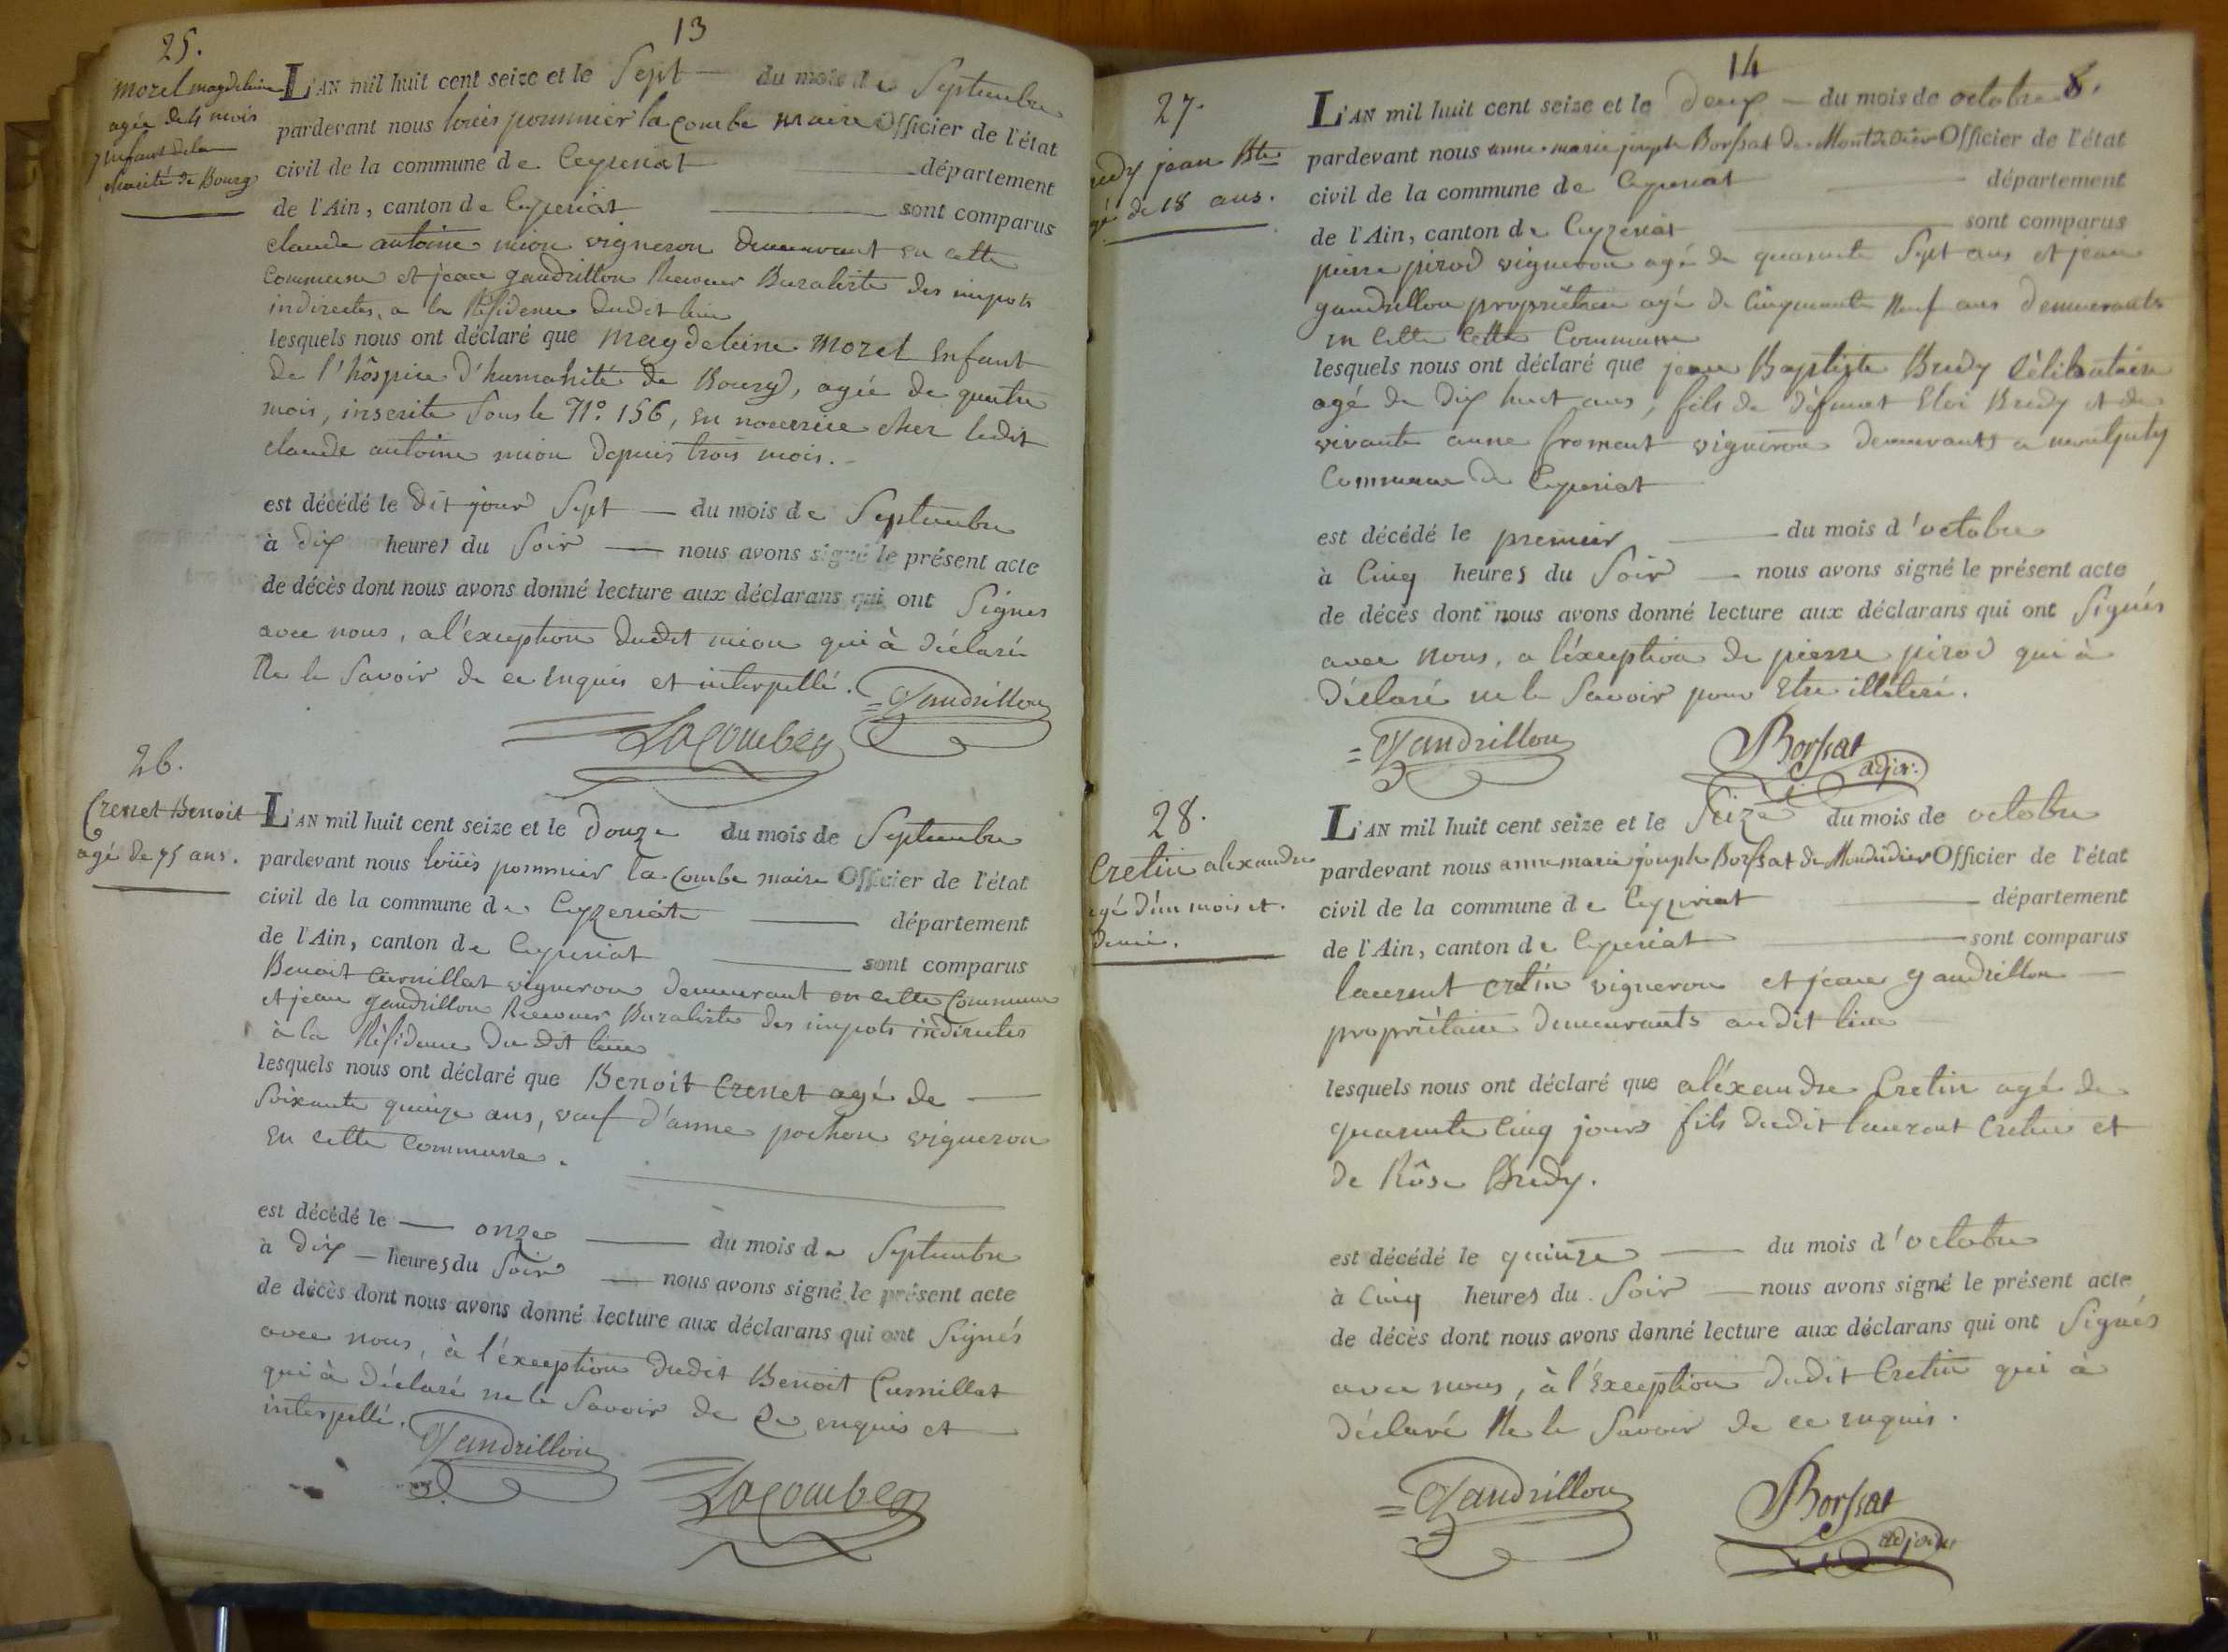 13
25.
morel magdeleine
agée de 4 mois
enfant de la
charité de Bourg
L'AN mil huit cent seize et le Sept — du mois de Septembre
pardevant nous loüis pommier la combe maire Officier de l'état
civil de la commune de Ceyzeriat — département
de l'Ain, canton de Ceyzeriat — sont comparus
claude antoine mion vigneron demeurant en cette
commune et jean gaudrillon Receveur Buraliste des impots
indirectes, a la Résidence dudit lieu
lesquels nous ont déclaré que magdeleine morel Enfant
de l'hôspice d'humanité de Bourg, agée de quatre
mois, inscrite sous le N.° 156, en nourrice chez ledit
claude antoine mion depuis trois mois. -
est décédé le dit jour Sept — du mois de Septembre
à dix heures du Soir — nous avons signé le présent acte
de décès dont nous avons donné lecture aux déclarans qui ont Signés
avec nous, a l'exception dudit mion qui à déclaré
Ne le Savoir de ce Enquis et interpellé. Gaudrillon
Lacombe
26.
Crenet Benoit
agé de 75 ans.
L'AN mil huit cent seize et le douze du mois de Septembre
pardevant nous loüis pommier la Combe maire Officier de l'état
civil de la commune de Ceyzeriat — département
de l'Ain, canton de Ceyzeriat — sont comparus
Benoit Curnillat vigneron demeurant en cette Commune
et jean gaudrillon Receveur Buraliste des impots indirectes
à la Résidence du dit lieu
lesquels nous ont déclaré que Benoit Crenet agé de —
Soixante quinze ans, veuf d'anne pochon vigneron
en cette commune.
est décédé le — onze — du mois de Septembre
à Dix — heures du Soir — nous avons signé le présent acte
de décès dont nous avons donné lecture aux déclarans qui ont Signés
avec nous, à l'éxception dudit Benoit Curnillat
qui à déclaré ne le Savoir de Ce enquis et —
interpellé. Gaudrillon
Lacombe
14
8.
27.
Bredy jean Bte
agé de 18 ans.
L'AN mil huit cent seize et le Deux — du mois de octobre
pardevant nous anne marie joseph Borssat de Montdidier Officier de l'état
civil de la commune de Ceyzeriat — département
de l'Ain, canton de Ceyzeriat — sont comparus
pierre pirod vigneron agé de quarante Sept ans et jean
gaudrillon propriétaire agé de Cinquante Neuf ans demeurants
en Cette Cette Commune
lesquels nous ont déclaré que jean Baptiste Bredy Célibataire
agé de dix huit ans, fils de défunt Eloi Bredy et de
vivante anne froment vigneron demeurants a
Commune de Ceyzeriat
est décédé le premier — du mois d'octobre
à Cinq heures du Soir — nous avons signé le présent acte
de décès dont nous avons donné lecture aux déclarans qui ont Signés
avec Nous, a l'éxception de pierre pirod qui à
déclaré ne le Savoir pour Etre illétéré.
Gaudrillon Borssat
adjoi.
28.
Cretin alexandre
agé d'un mois et
demi.
L'AN mil huit cent seize et le Seize du mois de octobre
pardevant nous anne marie joseph Borssat de Mondidier Officier de l'état
civil de la commune de Ceyzeriat — département
de l'Ain, canton de Ceyzeriat — sont comparus
laurent cretin vigneron et jean gaudrillon —
propriétaire demeurants audit lieu
lesquels nous ont déclaré que aléxandre Cretin agé de
quarante Cinq jours fils dudit laurent Cretin et
de Rôse Bredy.
est décédé le quinze — du mois d'octobre
à Cinq heures du Soir — nous avons signé le présent acte
de décès dont nous avons donné lecture aux déclarans qui ont Signés
avec nous, à l'Exception dudit Cretin qui à
déclaré Ne le Savoir de ce enquis.
Gaudrillon Borssat
adjoint